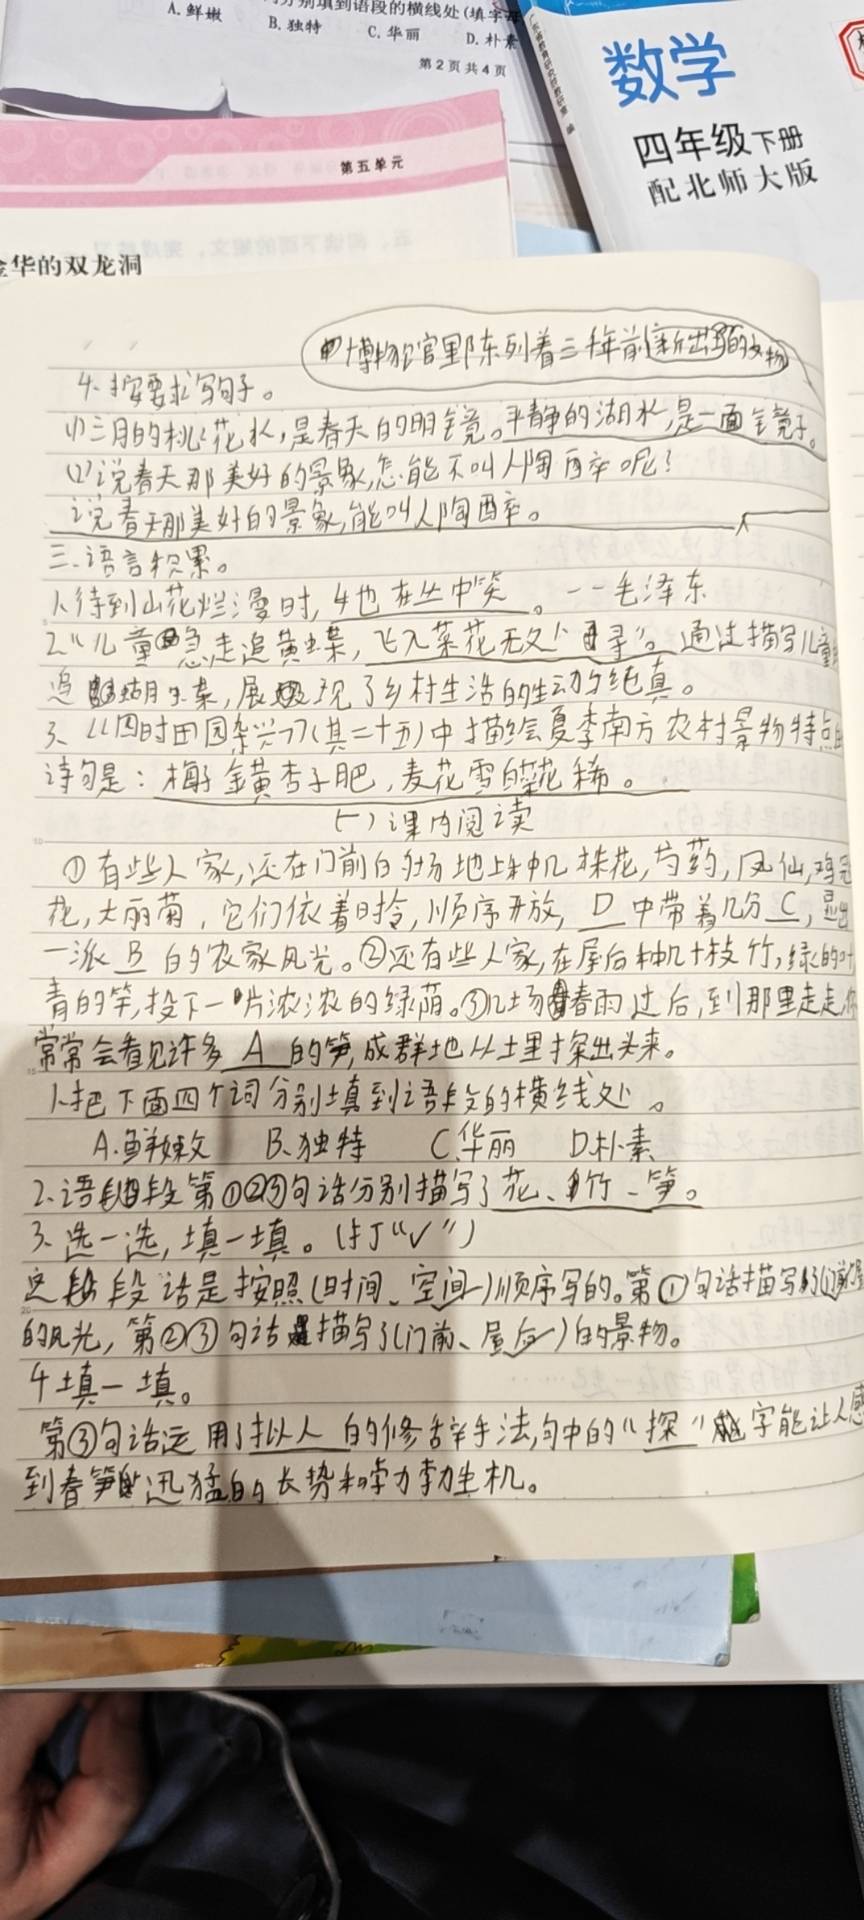 分别填到语段的横线处(填字母
A.鲜嫩 B.独特 C.华丽 D.朴素
第2页共4页
数学
四年级下册
配北师大版
第五单元
金华的双龙洞
博物馆里陈列着三千年前新出土的文物
4.按要求写句子。
(1)三月的桃花水,是春天的明镜。平静的湖水,是一面镜子。
(2)说春天那美好的景象,怎能不叫人陶醉呢?
说春天那美好的景象,能叫人陶醉。
三.语言积累。
1.待到山花烂漫时,她在丛中笑。--毛泽东
2."儿童急走追黄蝶,飞入菜花无处寻"。通过描写儿童
追蝴蝶,展现了乡村生活的生动与纯真。
3.《四时田园杂兴》(其二十五)中描绘夏季南方农村景物特点的
诗句是:梅子金黄杏子肥,麦花雪白菜花稀。
(一)课内阅读
①有些人家,还在门前的场地上种几株花,芍药,凤仙,鸡冠
花,大丽菊,它们依着时令,顺序开放,D中带着几分C,显出
一派B的农家风光。②还有些人家,在屋后种几十枝竹,绿的叶
青的竿,投下一片浓浓的绿荫。③几场春雨过后,到那里走走,你
常常会看见许多A的笋,成群地从土里探出头来。
1.把下面四个词分别填到语段的横线处。
A.鲜嫩 B.独特 C.华丽 D.朴素
2.语段第①②③句话分别描写了花、竹、笋。
3.选一选,填一填。(打"√")
这段话是按照(时间、空间)顺序写的。第①句话描写了(门前、屋
的风光,第②③句话描写了(门前、屋后)的景物。
4填一填。
第③句话运用了拟人的修辞手法,句中的"探"字能让人感
到春笋迅猛的长势和勃勃生机。